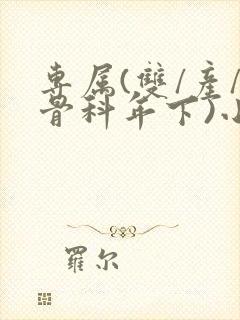 專属(雙/產/
骨科年下)
羅尔